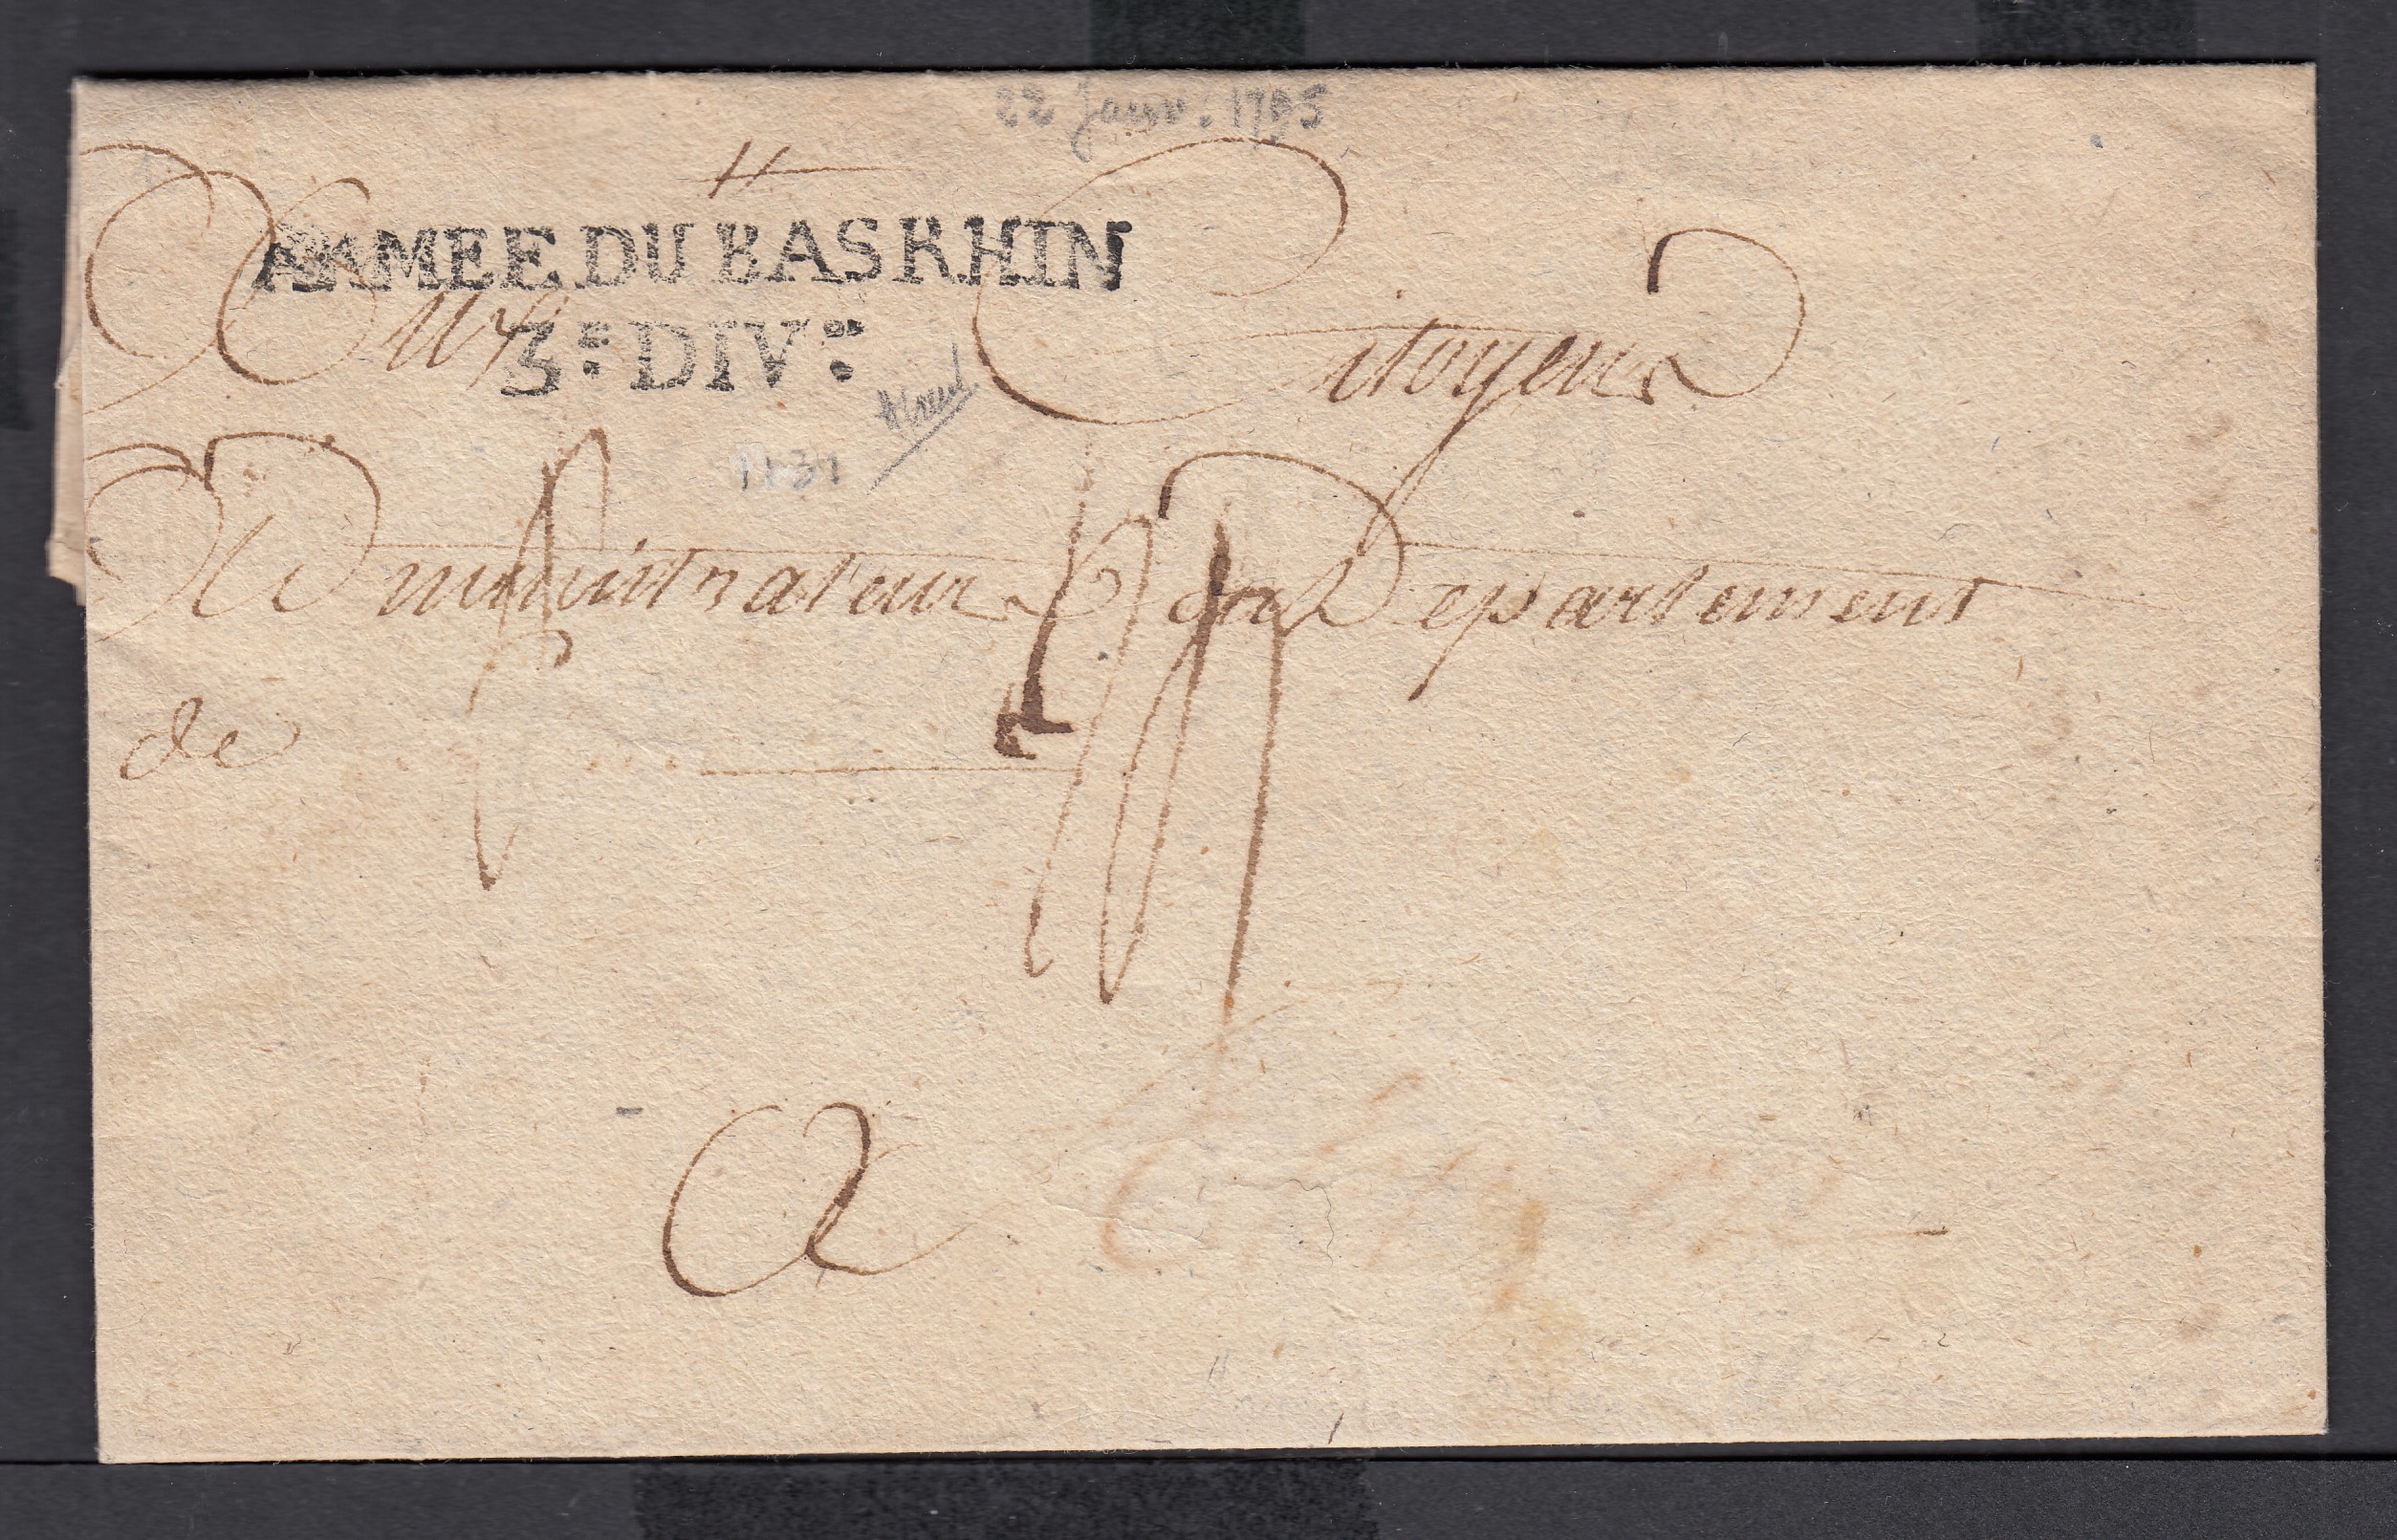 22 Janv. 1795
ARMEE DU BAS RHIN
3e DIVon
Aux Citoyens
Administrateurs du Departement
de
A